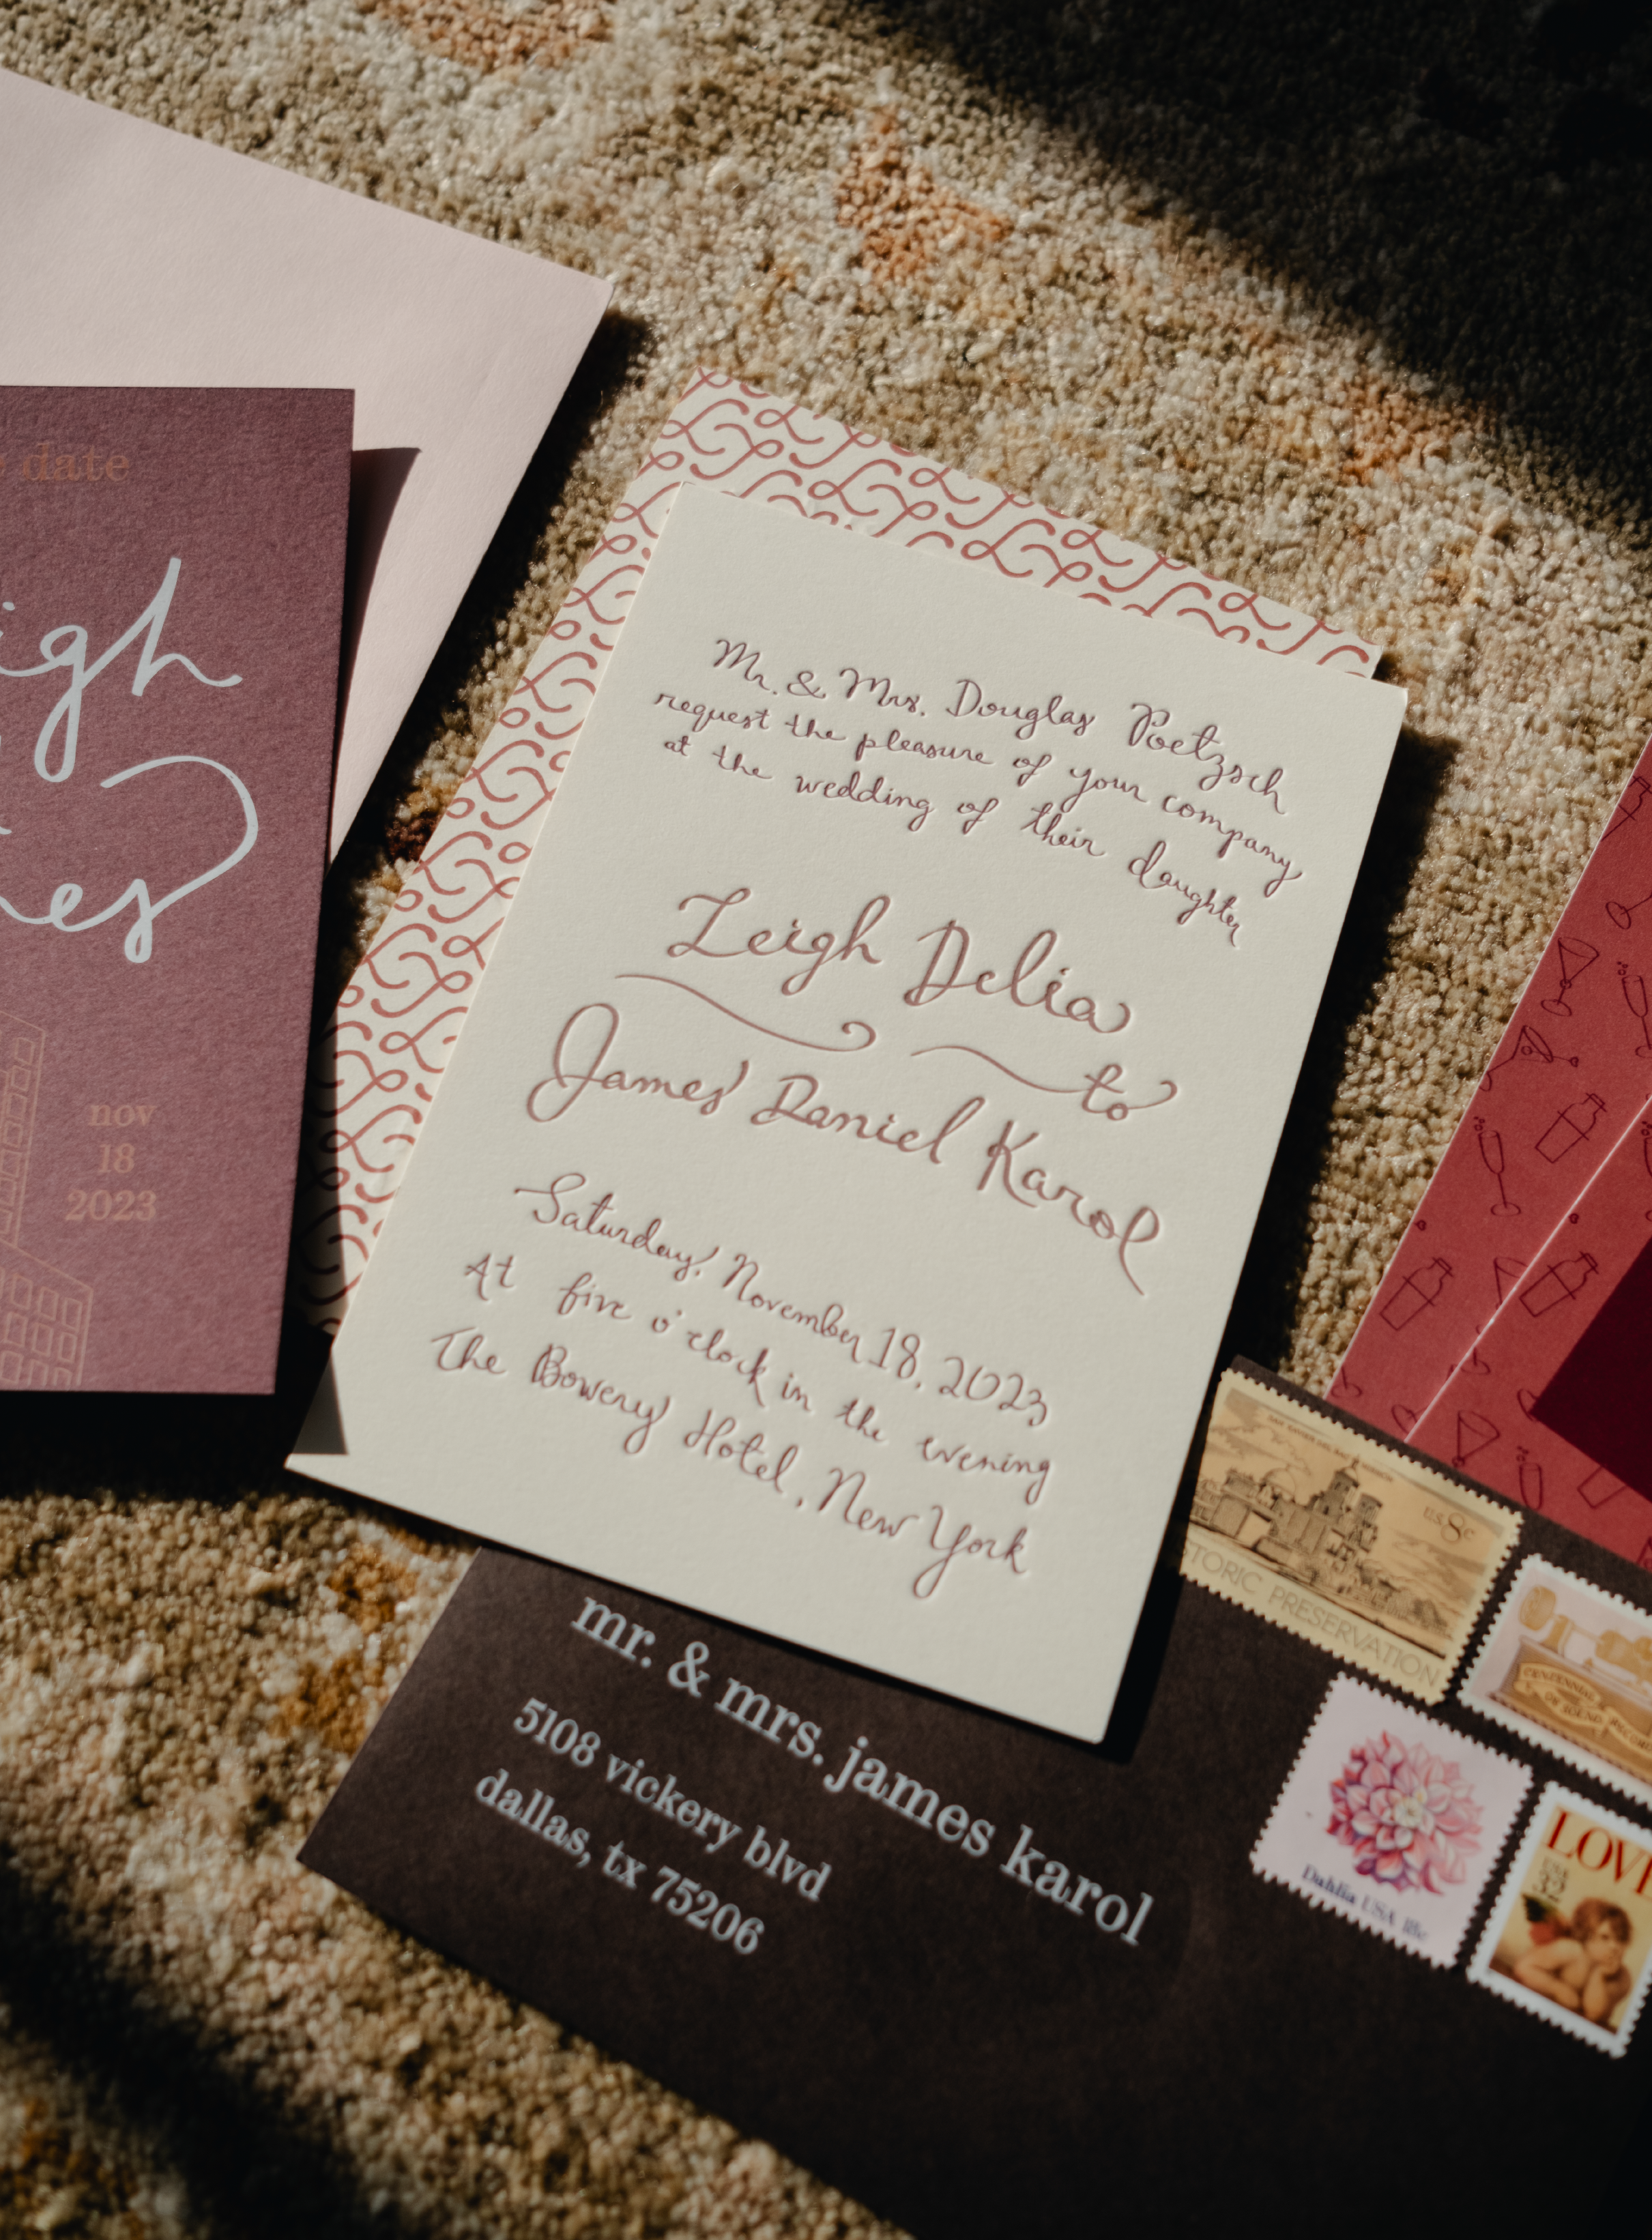 date
nov
18
2023
Mr. & Mrs. Douglas Poetzsch
request the pleasure of your company
at the wedding of their daughter
Leigh Delia
to
James Daniel Karol
Saturday, November 18, 2023
At five o'clock in the evening
The Bowery Hotel, New York
mr. & mrs. james karol
5108 vickery blvd
dallas, tx 75206
US 8c
PRESERVATION
CENTENNIAL
OF SOUND
Dahlia USA 18c
USA
32